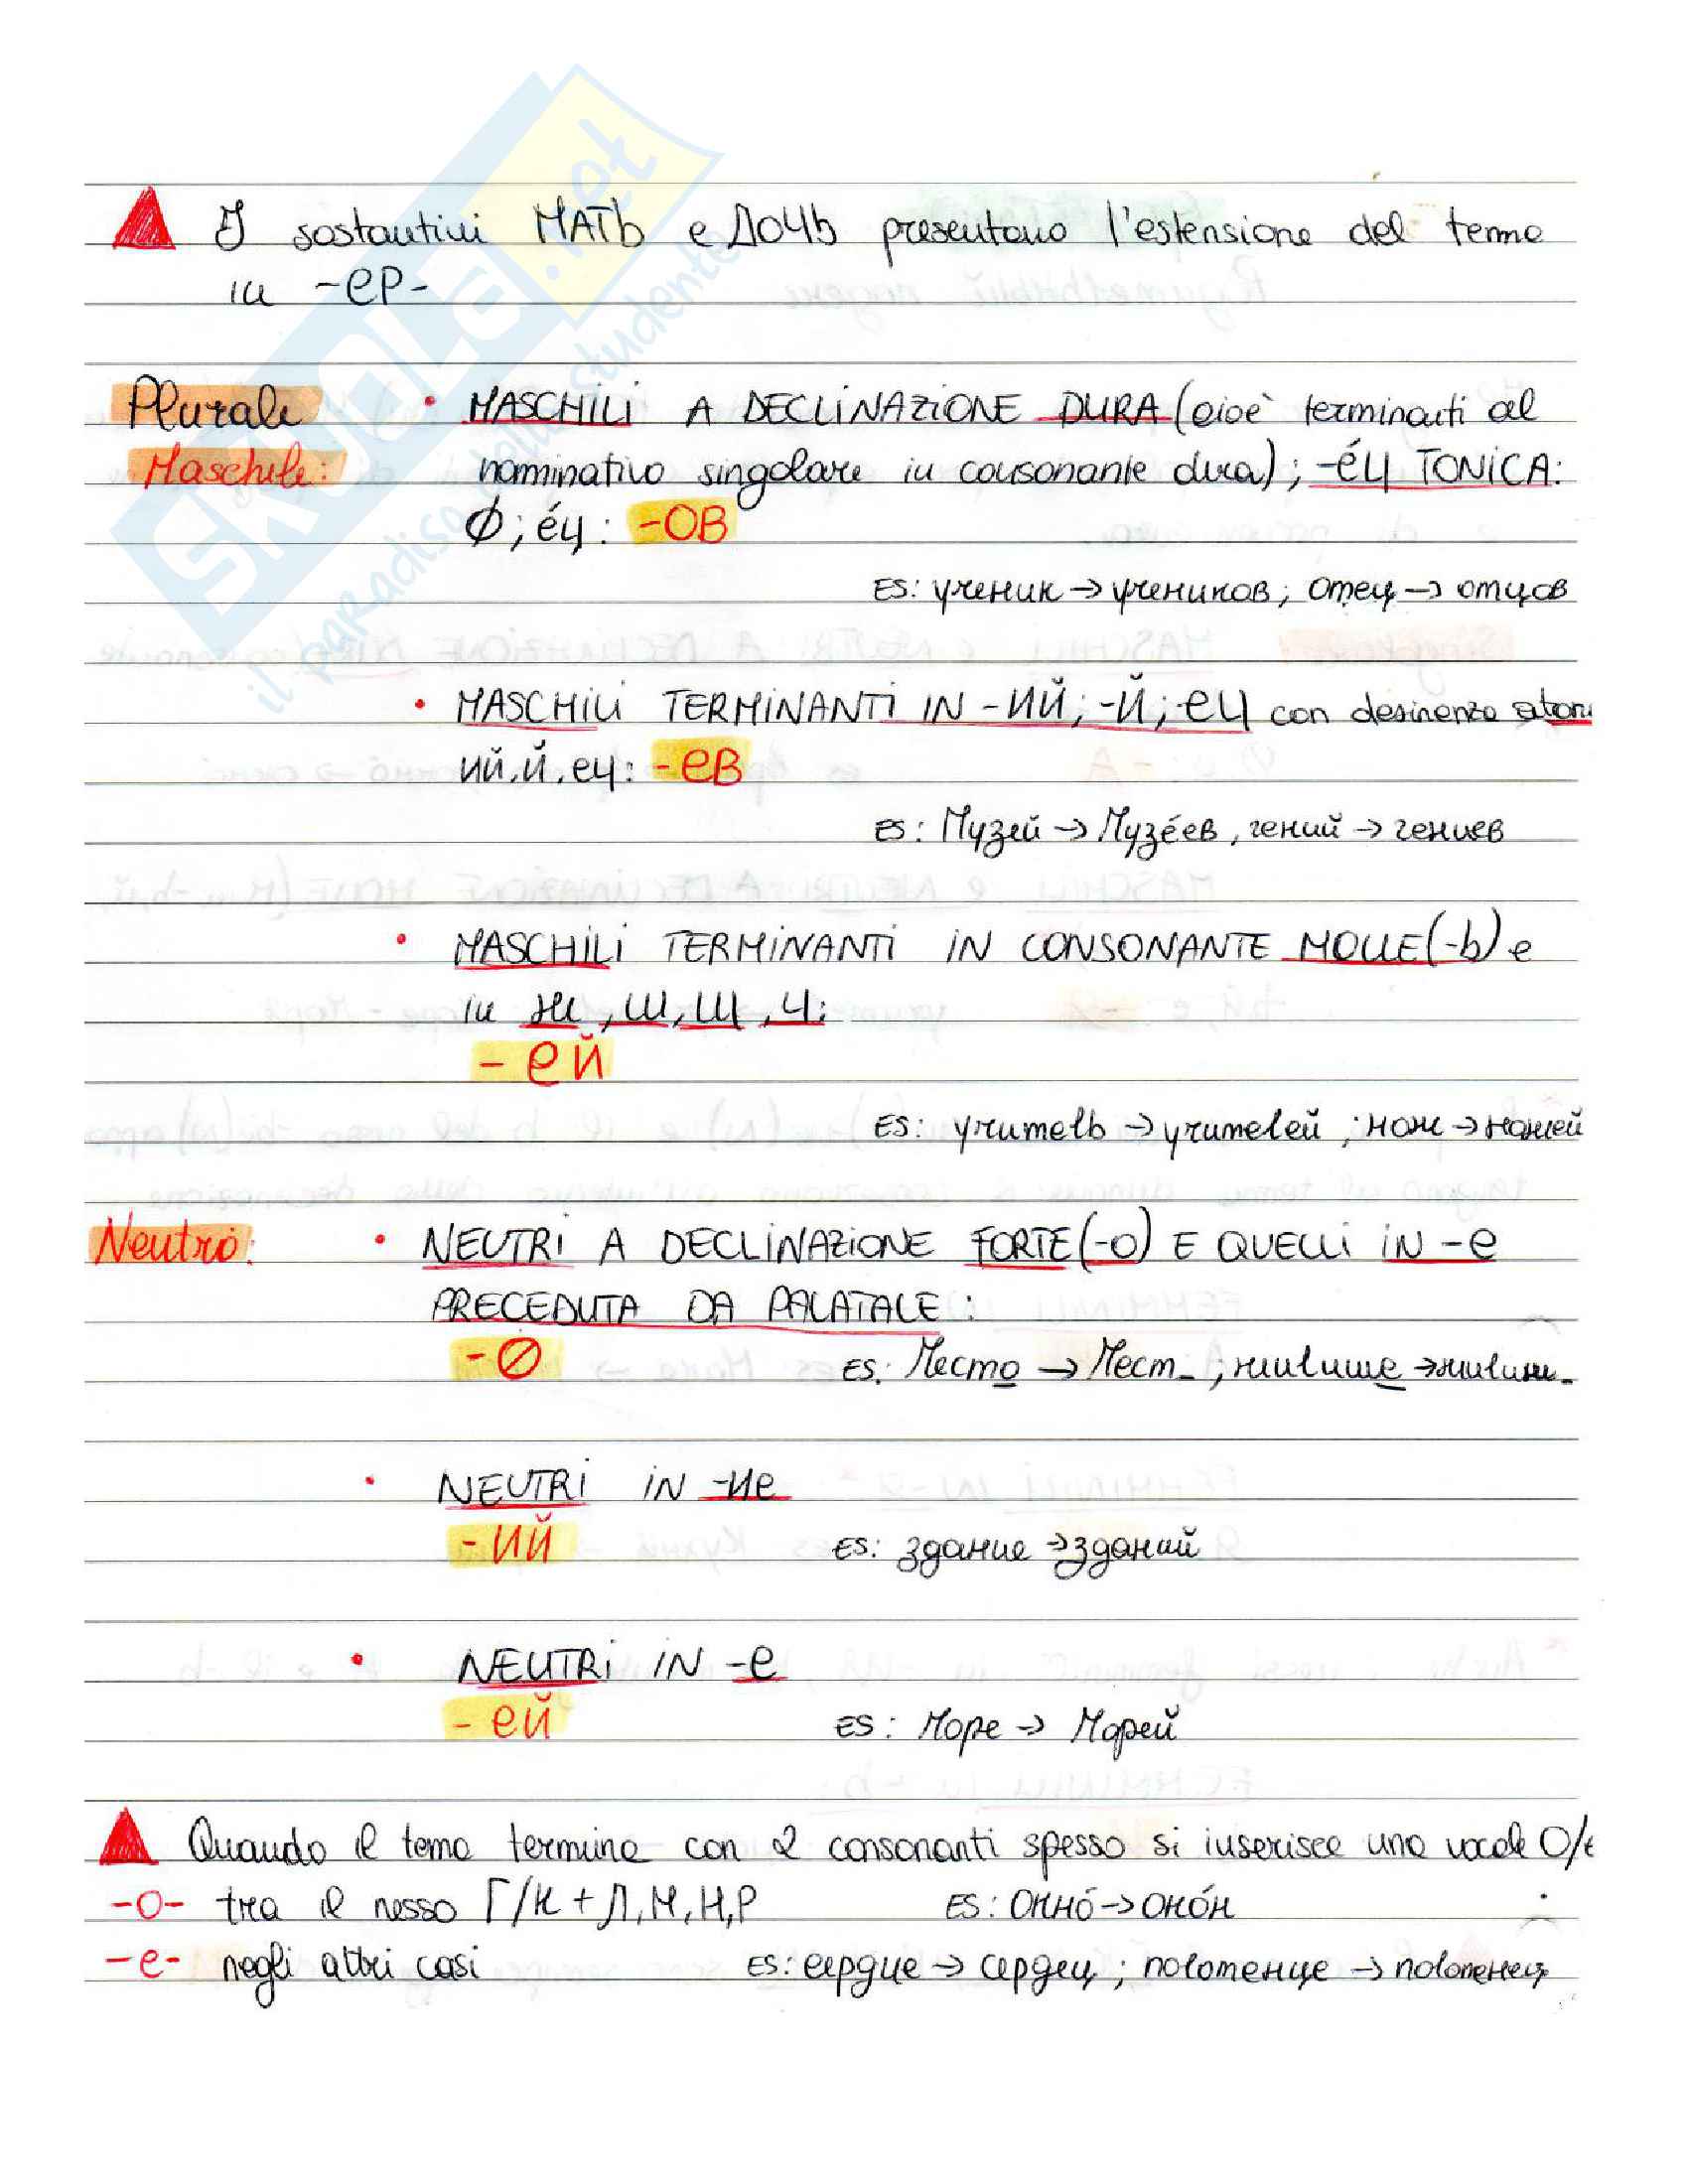 I sostantivi МАТЬ e ДОЧЬ presentano l'estensione del tema
in -ер-
Plurale • MASCHILI A DECLINAZIONE DURA (cioè terminanti al
Maschile: nominativo singolare in consonante dura); -éц TONICA:
Ø; éц: -ОВ
ES: ученик → учеников; отец → отцов
• MASCHILI TERMINANTI IN -ий; -й; -ец con desinenza aton
ий, й, ец: -ев
ES: Музей → Музéев, гений → гениев
• MASCHILI TERMINANTI IN CONSONANTE MOLLE (-ь) e
in ж, ш, щ, ч:
-ей
ES: учитель → учителей; нож → ножей
Neutro: • NEUTRI A DECLINAZIONE FORTE (-о) E QUELLI IN -е
PRECEDUTA DA PALATALE:
-Ø ES: Место → Мест_;
• NEUTRI IN -ие
-ий ES: здание → зданий
• NEUTRI IN -е
-ей ES: Море → Морей
Quando il tema termina con 2 consonanti spesso si inserisce una vocale O/e
-о- tra il nesso Г/К + Л, М, Н, Р ES: окнó → окóн
-е- negli altri casi ES: сердце → сердец; полотенце → полотенец
SKUOLA.net
il paradiso dello studente